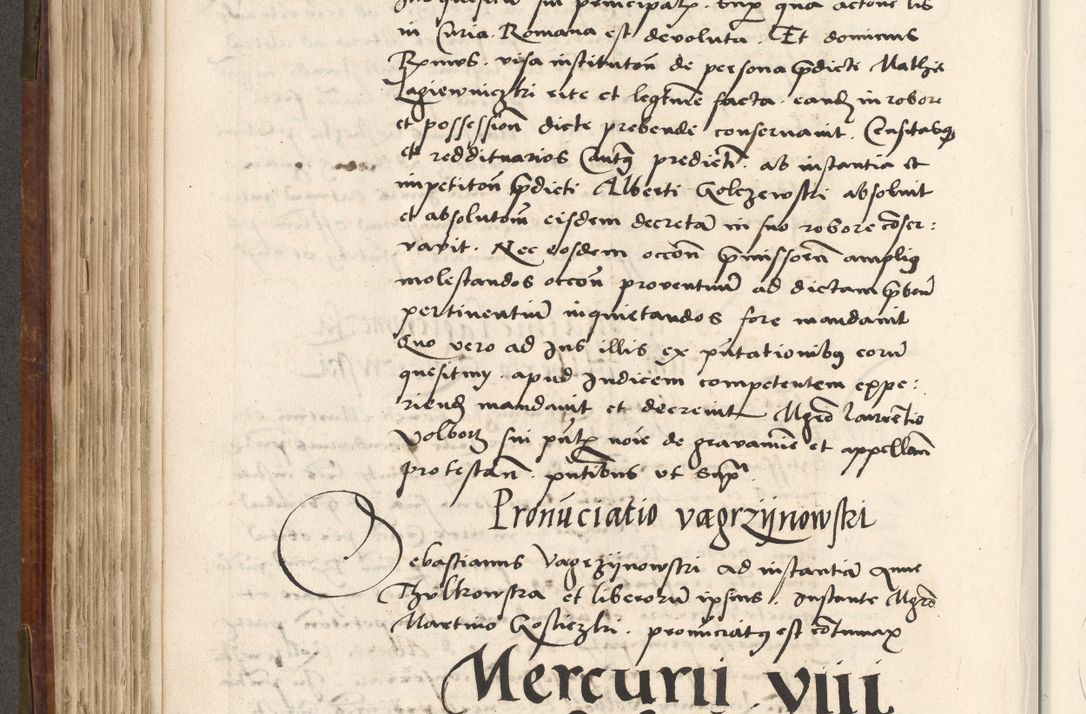 in Curia Romana est devoluta. Et dominus
Rxmus. visa institution de persona pdicti Mathie
Lagiewniczki rite et legtime facta. eand in robore
et possession dicte prebende conservavit. Censitasq
et reddituarios Cuntq predict. ab instantia et
impetiton pdicti Alberti Golczewski absolvit
et absolutom eisdem decreta in suo robore conser:
vavit. Nec eosdem occon pmissora amplig
molestandos occon proventuu ad dictam pbend
pertinentiu inquietandos fore mandavit
Quo vero ad Jus illis ex putationibg eoru
quesitm apud Judicem competentem expe:
riend mandavit et decrevit Mgro Laurentio
Wolbork sui pntp noie de gravamie et appellan
protestan. pntibus ut Sup
Pronunciatio vagrzijnowski
Sebastianus Vagrzijnowski ad instantia Anne
Thylkowska et liberoru ipsius. Instante Mgro
Martino Gosliczki. pronunciatg est contumax
Mercurii viii